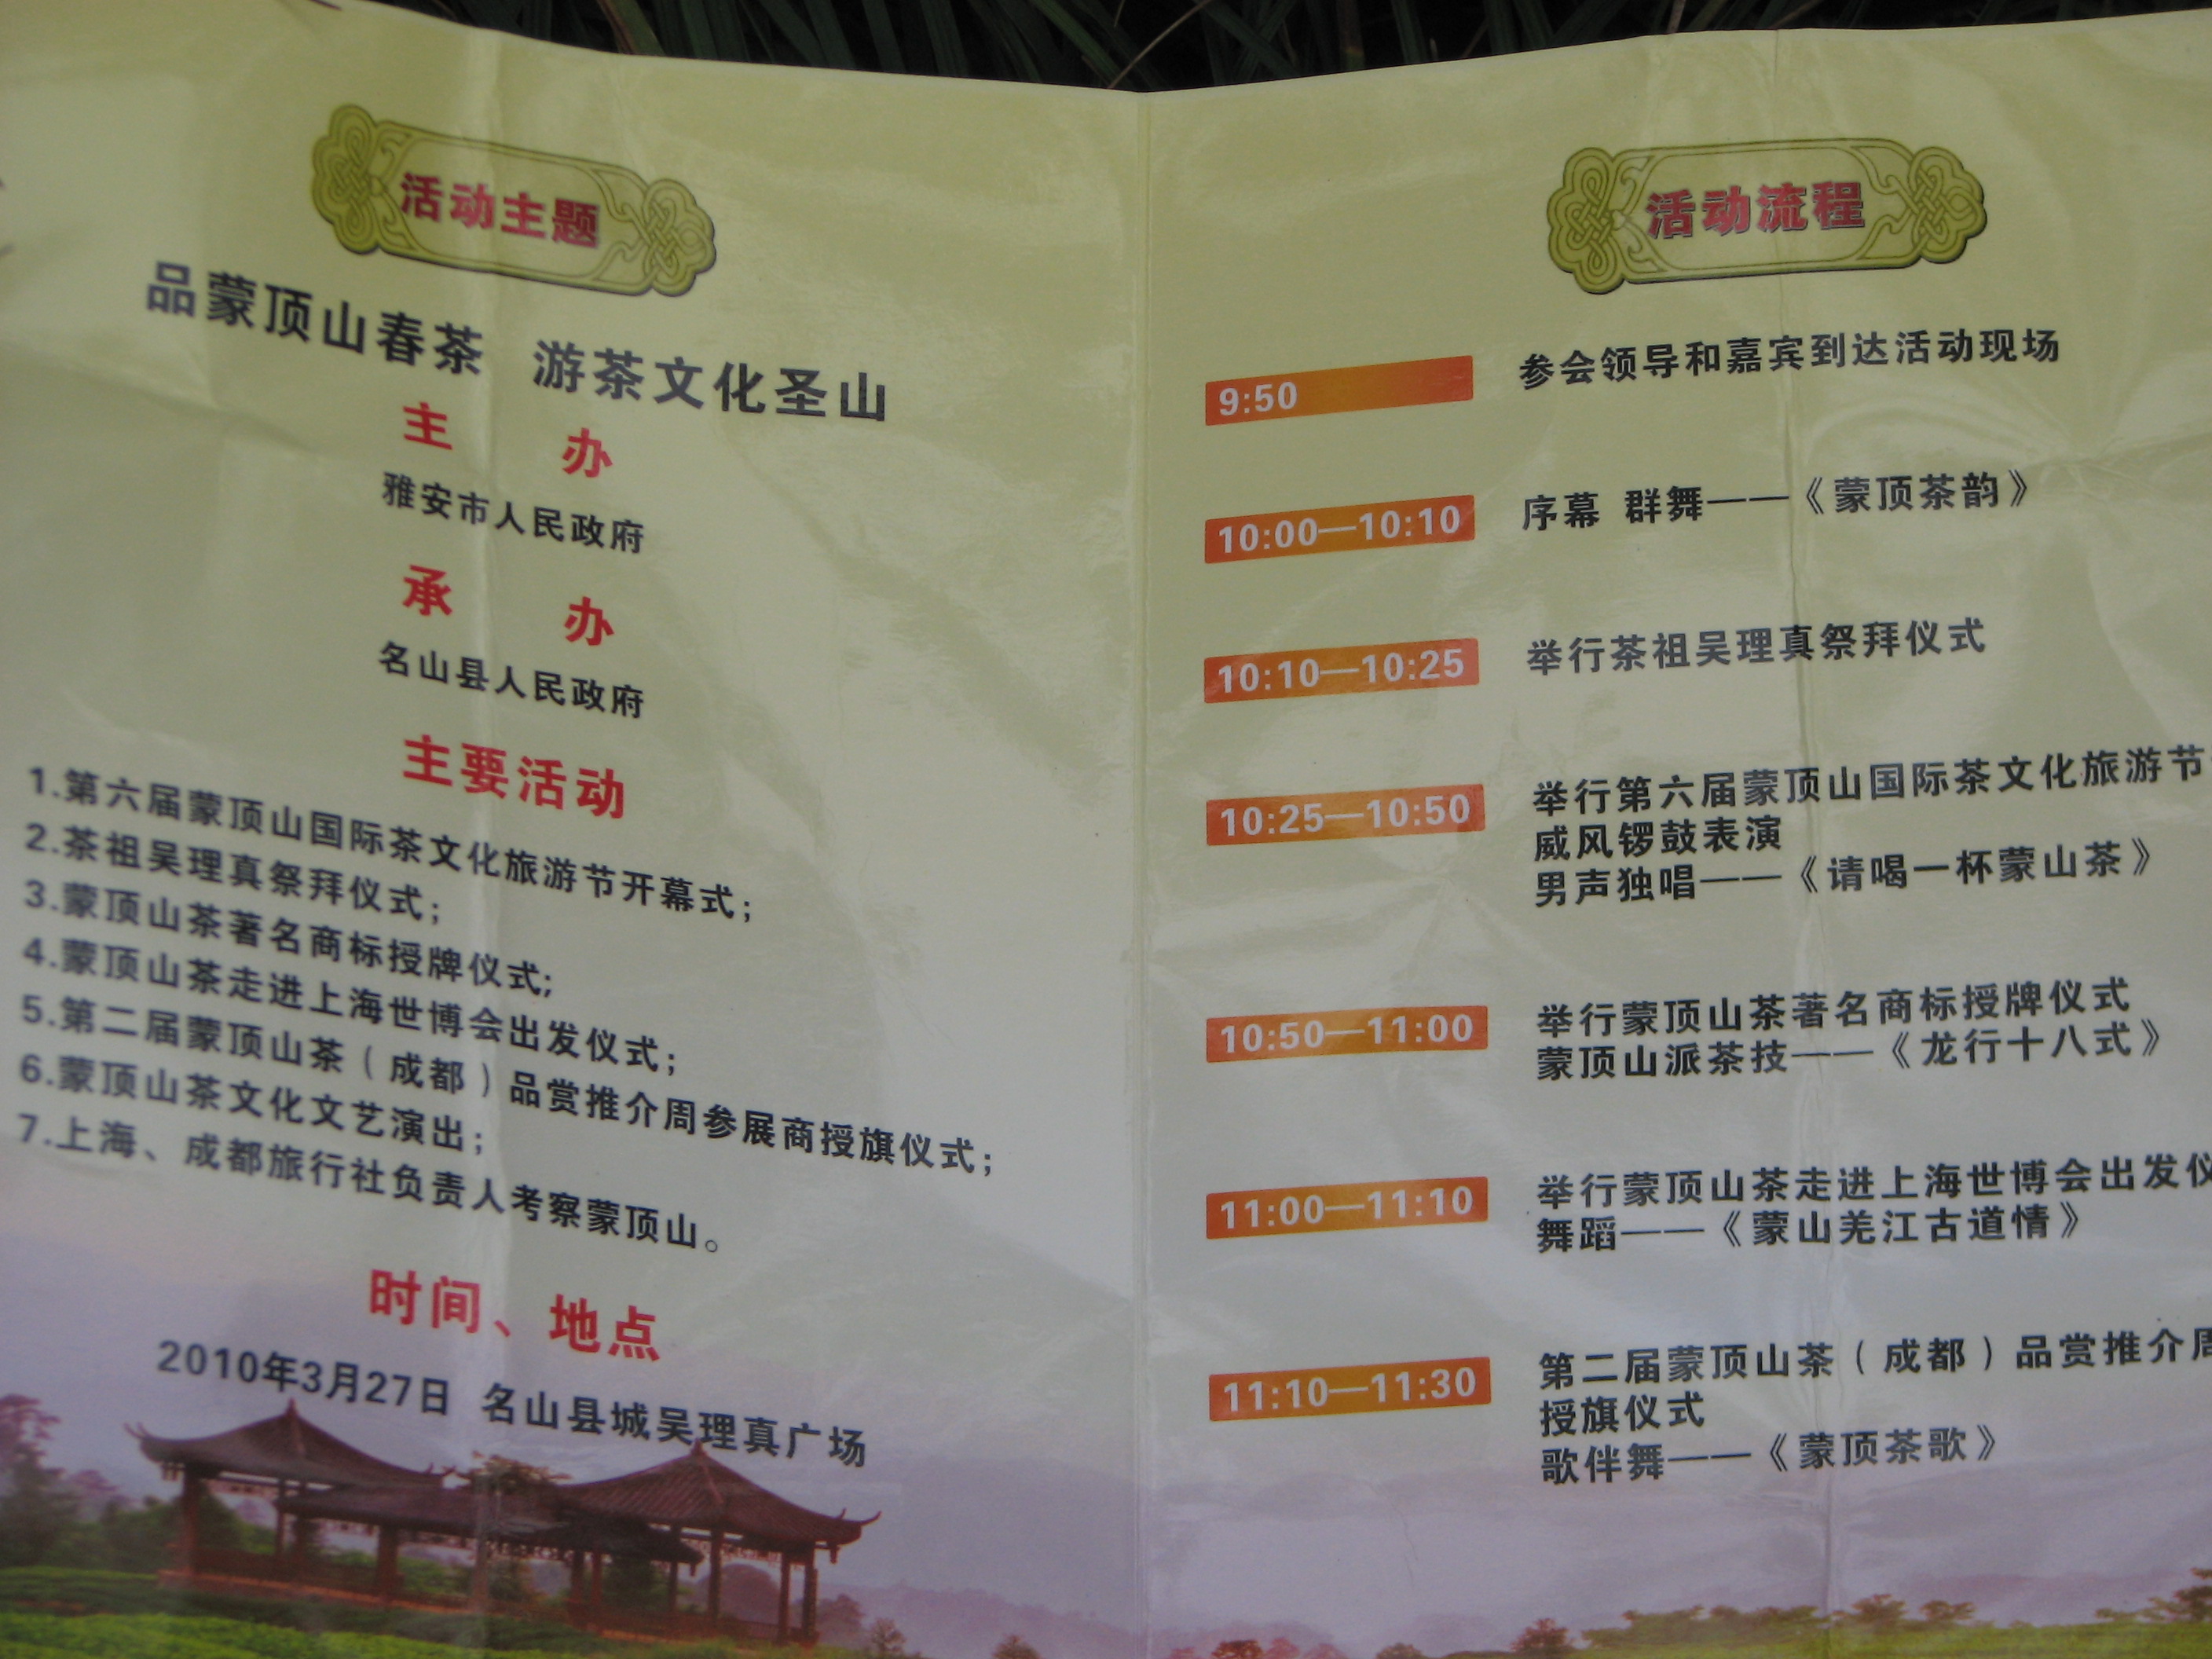 活动主题
品蒙顶山春茶 游茶文化圣山
主 办
雅安市人民政府
承 办
名山县人民政府
主要活动
1.第六届蒙顶山国际茶文化旅游节开幕式；
2.茶祖吴理真祭拜仪式；
3.蒙顶山茶著名商标授牌仪式；
4.蒙顶山茶走进上海世博会出发仪式；
5.第二届蒙顶山茶（成都）品赏推介周参展商授旗仪式；
6.蒙顶山茶文化文艺演出；
7.上海、成都旅行社负责人考察蒙顶山。
时间、地点
2010年3月27日 名山县城吴理真广场
活动流程
9:50 参会领导和嘉宾到达活动现场
10:00—10:10 序幕 群舞——《蒙顶茶韵》
10:10—10:25 举行茶祖吴理真祭拜仪式
10:25—10:50 举行第六届蒙顶山国际茶文化旅游节
威风锣鼓表演
男声独唱——《请喝一杯蒙山茶》
10:50—11:00 举行蒙顶山茶著名商标授牌仪式
蒙顶山派茶技——《龙行十八式》
11:00—11:10 举行蒙顶山茶走进上海世博会出发仪
舞蹈——《蒙山羌江古道情》
11:10—11:30 第二届蒙顶山茶（成都）品赏推介周
授旗仪式
歌伴舞——《蒙顶茶歌》